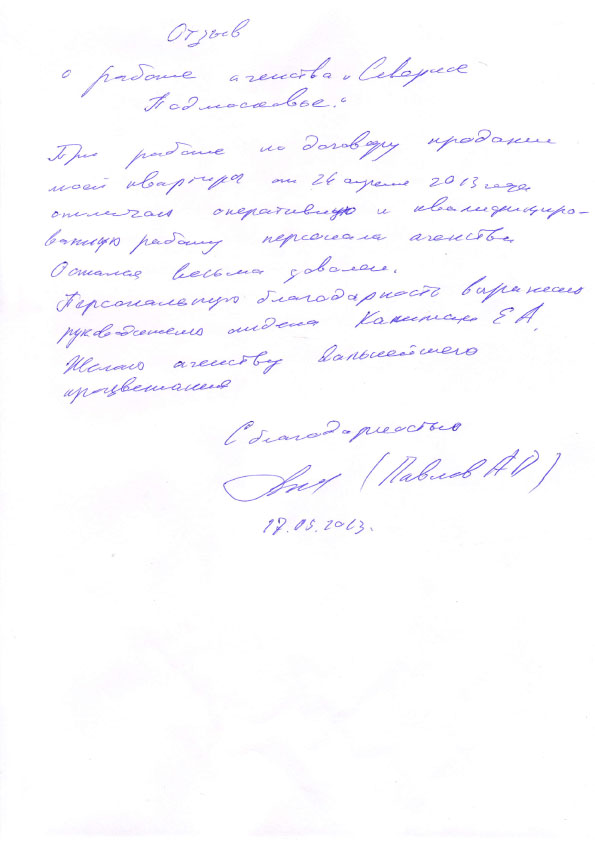 Отзыв
о работе агенства „Северное
Подмосковье."
При работе по договору продажи
моей квартиры от 26 апреля 2013 года
отмечаю оперативную и квалифициро-
ванную работу персонала агенства
Остался весьма доволен.
Персональную благодарность выражаю
руководителю отдела Е А.
Желаю агенству дальнейшего
процветания
С благодарностью
(Павлов А П)
17.05.2013.